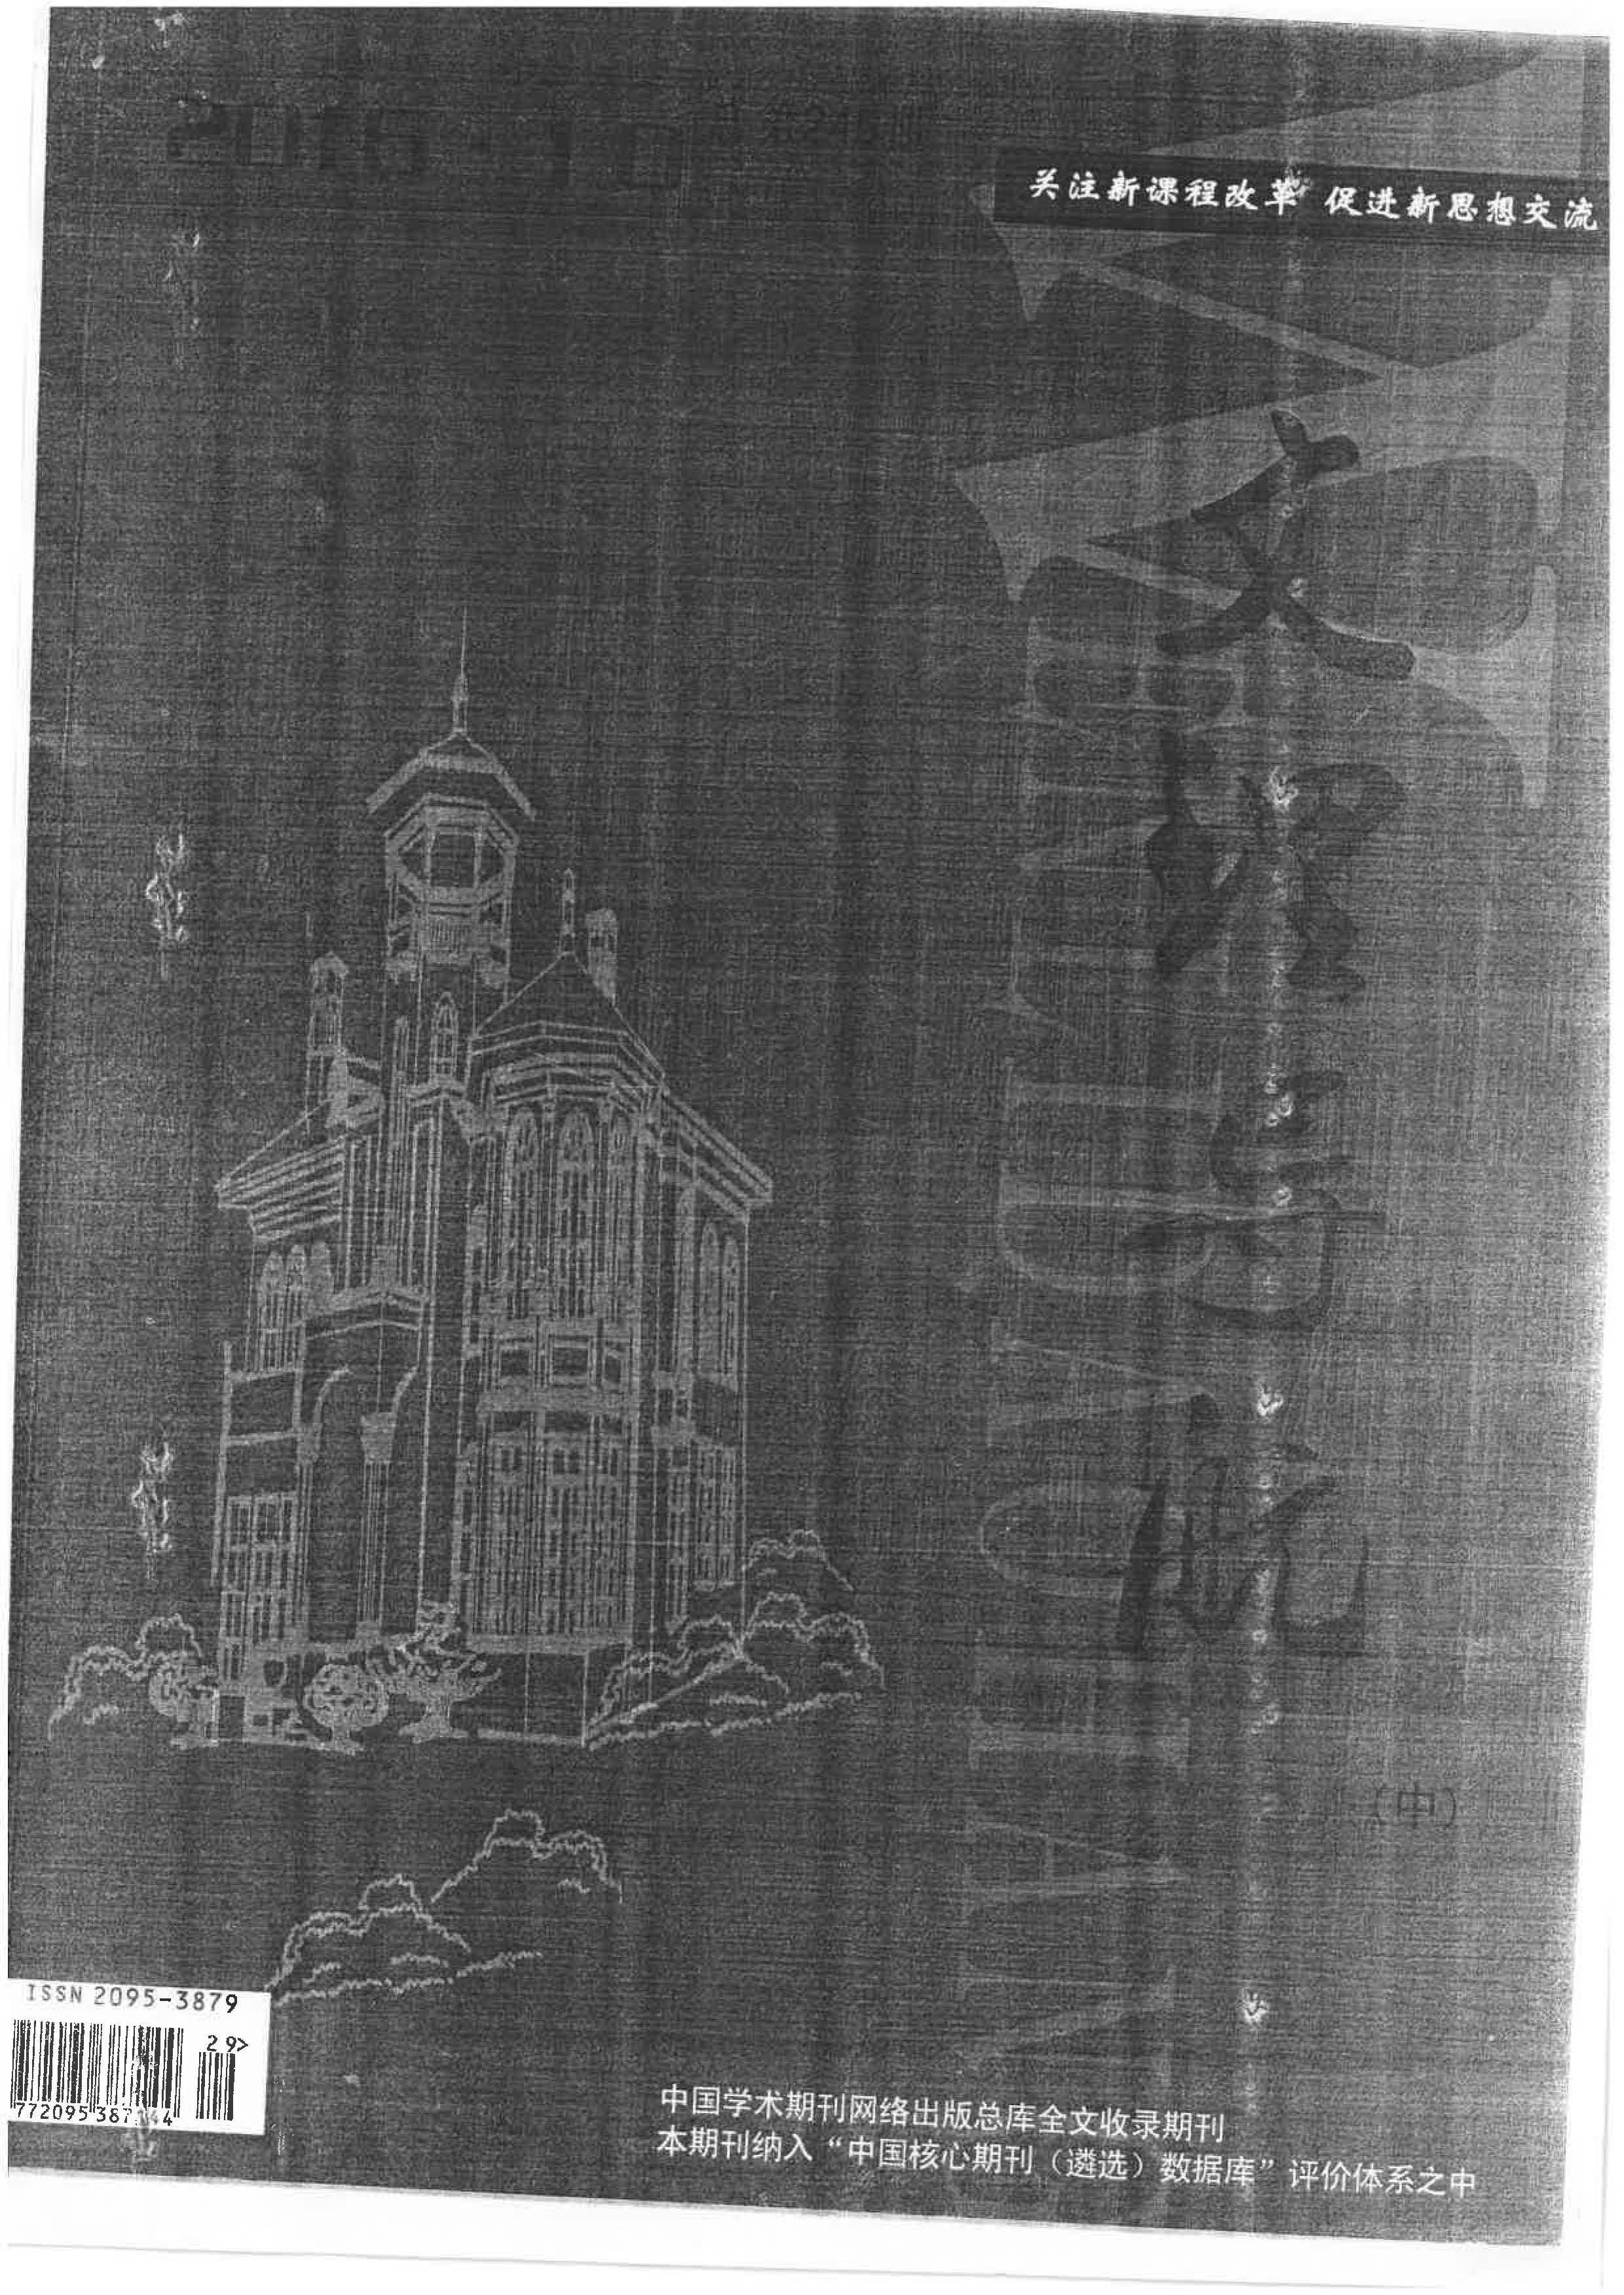 2015·10
关注新课程改革 促进新思想交流
文理导航
(中)
ISSN 2095-3879
29>
中国学术期刊网络出版总库全文收录期刊
本期刊纳入“中国核心期刊(遴选)数据库”评价体系之中